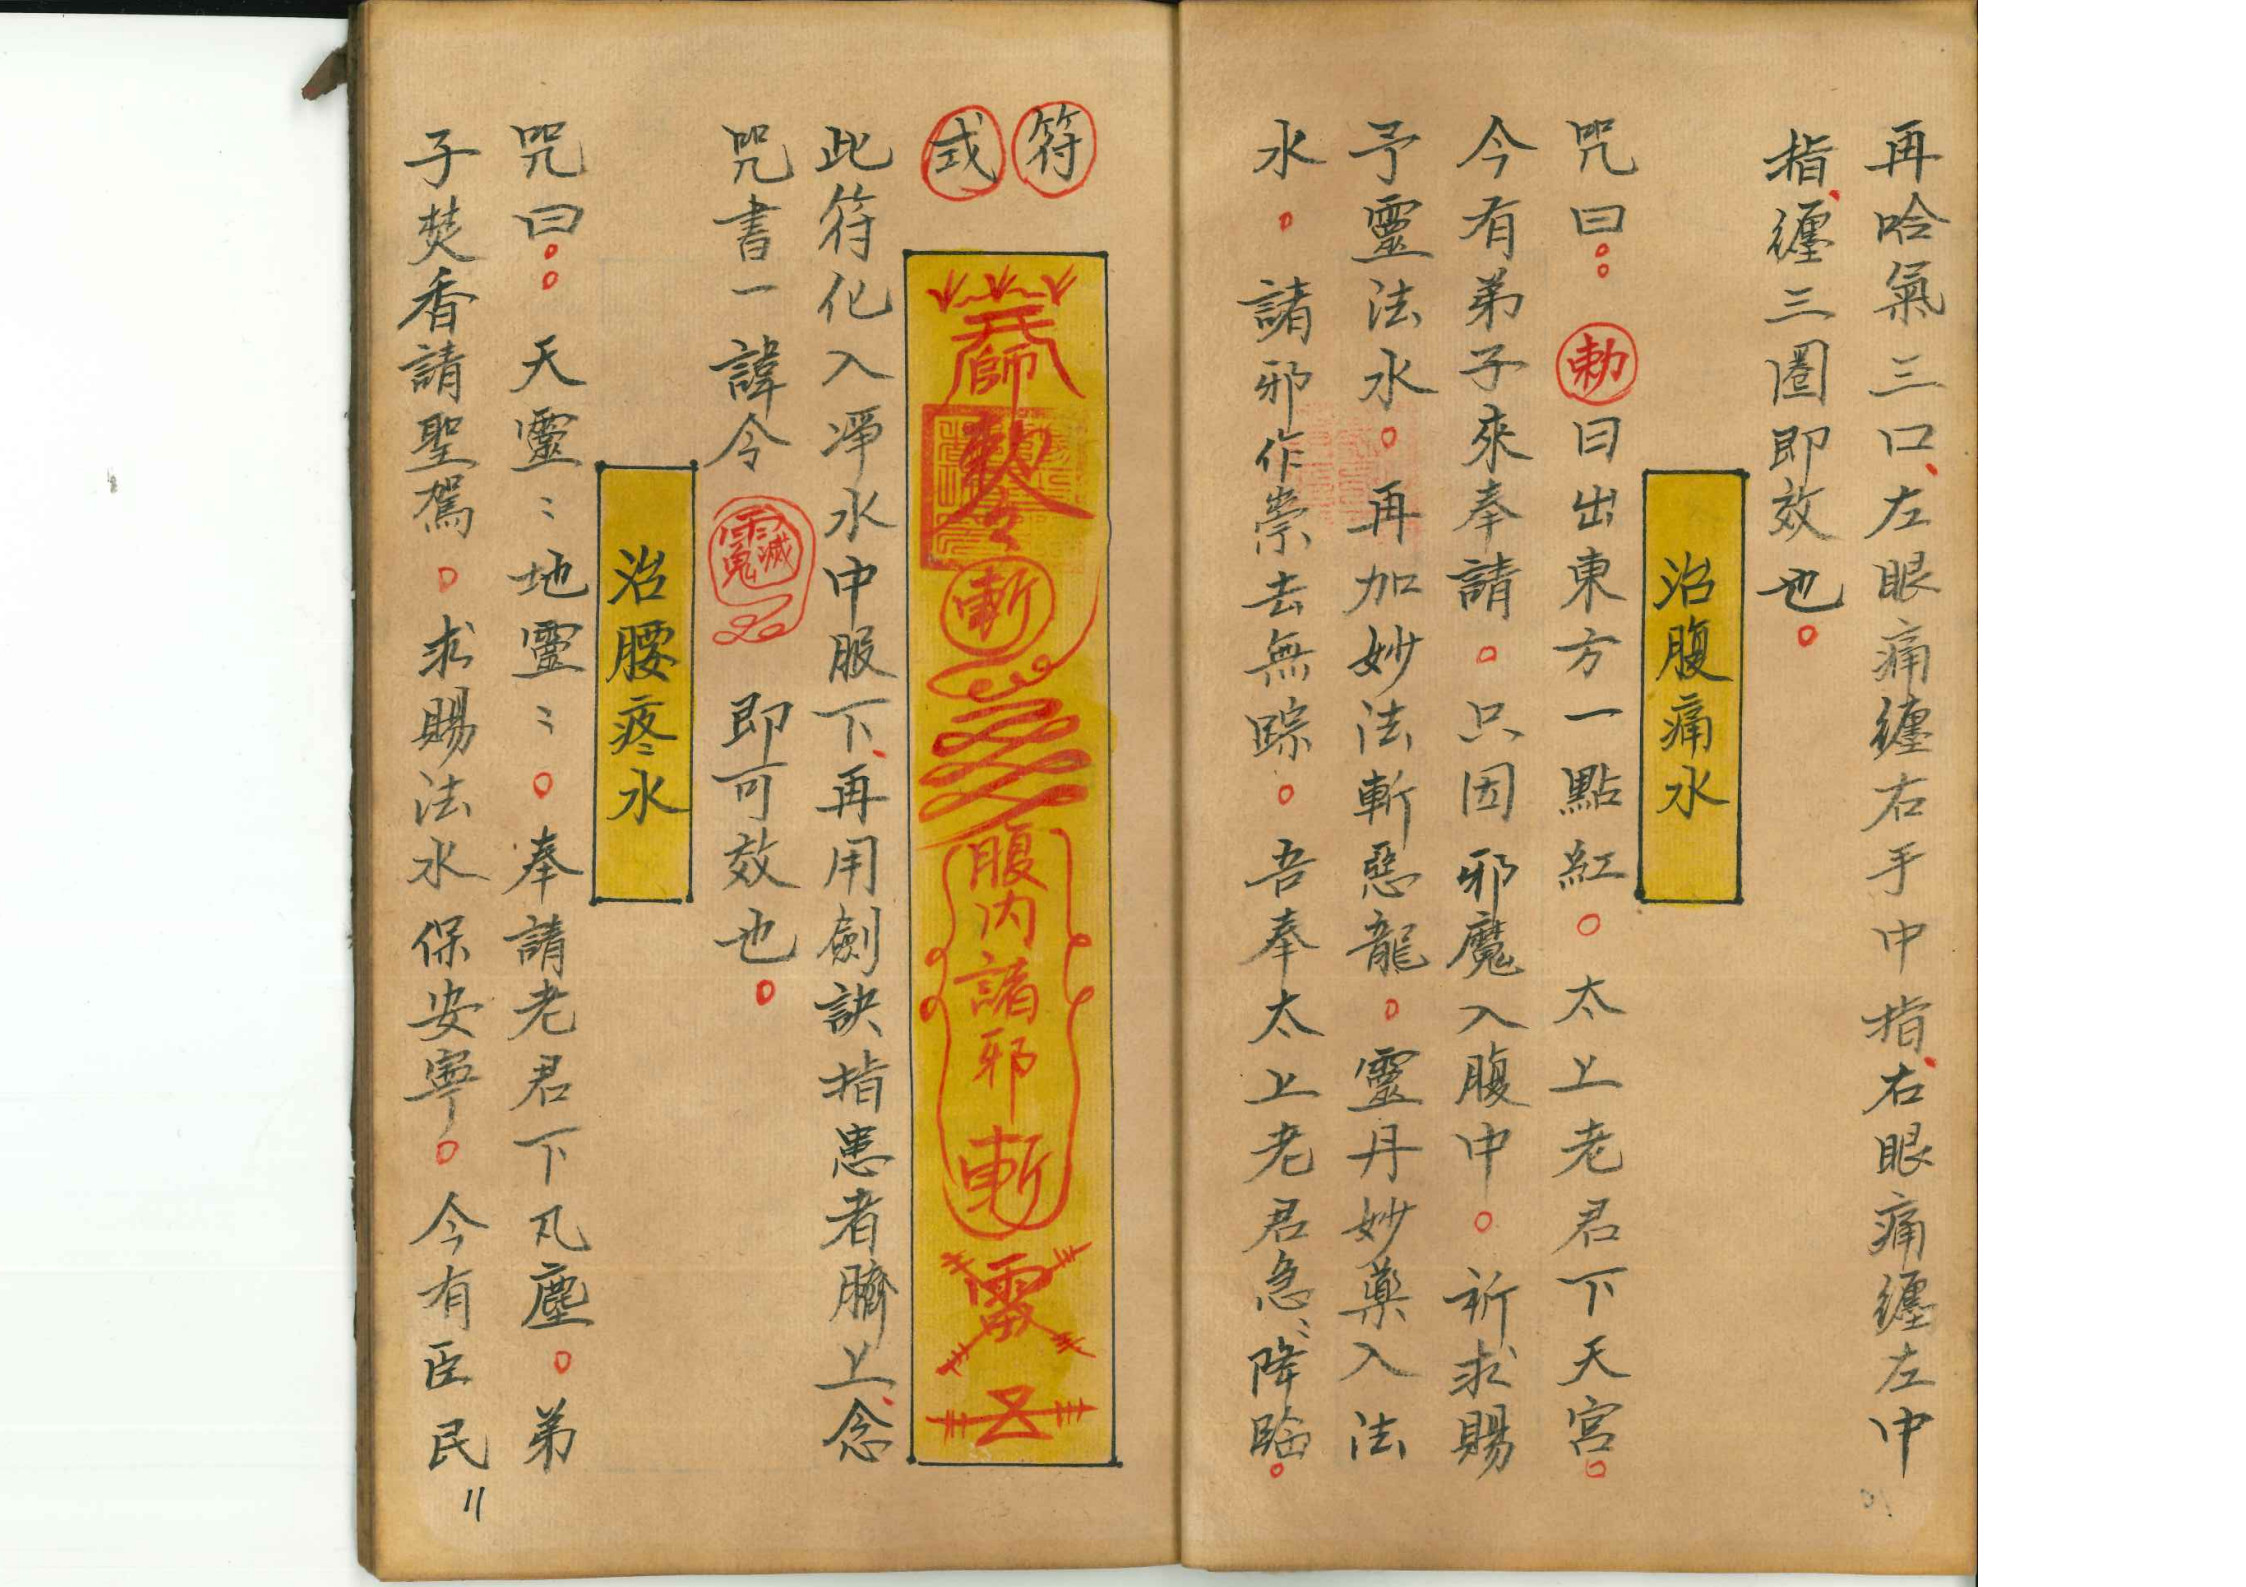 再哈氣三口、左眼痛纏右手中指、右眼痛纏左中
指、纏三圈即效也。
治腹痛水
咒曰：勅日出東方一點紅。太上老君下天宮。
今有弟子來奉請。只因邪魔入腹中。祈求賜
予靈法水。再加妙法斬惡龍。靈丹妙藥入法
水。諸邪作祟去無踪。吾奉太上老君急〻降臨。
符式
師
斬
腹内諸邪斬
此符化入淨水中服下、再用劍訣指患者臍上、念
咒書一諱令 即可效也。
治腰疼水
咒曰：天靈〻地靈〻。奉請老君下凡塵。弟
子焚香請聖駕。求賜法水保安寧。今有臣民
11